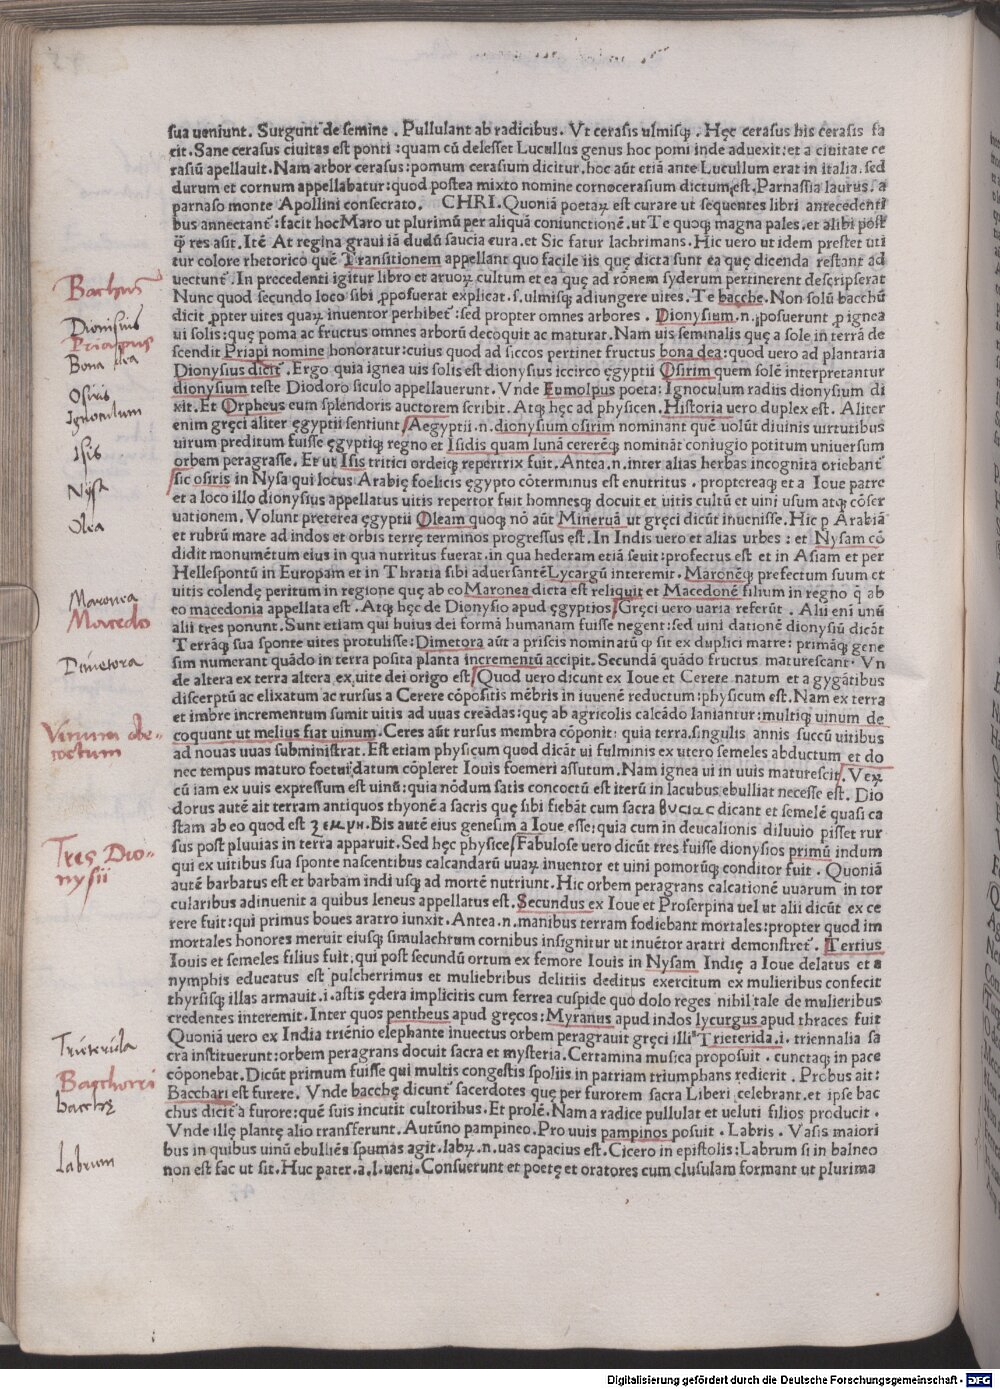 sua ueniunt. Surgunt de semine. Pullulant ab radicibus. Vt cerasis ulmisq;. Hęc cerasus his cerasis fa
cit. Sane cerasus ciuitas est ponti: quam cū delesset Lucullus genus hoc pomi inde aduexit: et a ciuitate ce
rasiū apellauit. Nam arbor cerasus: pomum cerasium dicitur. hoc aūt etiā ante Lucullum erat in italia. sed
durum et cornum appellabatur: quod postea mixto nomine cornocerasium dictum est. Parnassia laurus. a
parnaso monte Apollini consecrato. CHRI. Quoniā poetaꝝ est curare ut sequentes libri antecedenti
bus annectant᷑: facit hoc Maro ut plurimū per aliquā coniunctionē. ut Te quoq; magna pales. et alibi post
ꝙ res asię. Itē At regina graui iā dudū saucia cura. et Sic fatur lachrimans. Hic uero ut idem prestet uti
tur colore rhetorico quē Transitionem appellant quo facile iis quę dicta sunt ea quę dicenda restant ad
uectunt᷑. In precedenti igitur libro et aruoꝝ cultum et ea quę ad rōnem syderum pertinerent descripserat
Nunc quod secundo loco sibi ꝓposuerat explicat. s. ulmisq; adiungere uites. Te bacche. Non solū bacchū
dicit ꝓpter uites quaꝝ inuentor perhibet᷑: sed propter omnes arbores. Dionysium .n. posuerunt ꝓ ignea
ui solis: que poma ac fructus omnes arborū decoquit ac maturat. Nam uis seminalis que a sole in terrā de
scendit Priapi nomine honoratur: cuius quod ad siccos pertinet fructus bona dea: quod uero ad plantaria
Dionysius dicit᷑. Ergo quia ignea uis solis est dionysius iccirco ęgyptii Osirim quem solē interpretantur
dionysium teste Diodoro siculo appellauerunt. Vnde Eumolpus poeta: Ignoculum radiis dionysium di
xit. Et Orpheus eum splendoris auctorem scribit. Atq; hęc ad physicen. Historia uero duplex est. Aliter
enim gręci aliter ęgyptii sentiunt. Aegyptii .n. dionysium osirim nominant quē uolūt diuinis uirtutibus
uirum preditum fuisse ęgyptiq; regno et Isidis quam lunā cererēq; nomināt coniugio potitum uniuersum
orbem peragrasse. Et ut Isis tritici ordeiq; repertrix fuit. Antea .n. inter alias herbas incognita oriebant᷑
sic osiris in Nysa qui locus Arabię foelicis ęgypto cōterminus est enutritus. proptereaq; et a Ioue patre
et a loco illo dionysius appellatus uitis repertor fuit homnesq; docuit et uitis cultū et uini usum atq; cōser
uationem. Volunt preterea ęgyptii Oleam quoq; nō aūt Mineruā ut gręci dicūt inuenisse. Hic p Arabiā
et rubrū mare ad indos et orbis terrę terminos progressus est. In Indis uero et alias urbes: et Nysam cō
didit monumētum eius in qua nutritus fuerat. in qua hederam etiā seuit: profectus est et in Asiam et per
Hellespontū in Europam et in Thratia sibi aduersantē Lycargū interemit. Maronēq; prefectum suum et
uitis colendę peritum in regione quę ab eo Maronea dicta est reliquit et Macedonē filium in regno ꝙ ab
eo macedonia appellata est. Atq; hęc de Dionysio apud ęgyptios. Gręci uero uaria referūt. Alii eni unū
alii tres ponunt. Sunt etiam qui huius dei formā humanam fuisse negent: sed uini dationē dionysiū dicāt
Terrāq; sua sponte uites protulisse: Dimetora aūt a priscis nominatū ꝙ sit ex duplici matre: primāq; gene
sim numerant quādo in terra posita planta incrementū accipit. Secundā quādo fructus maturescant. Vn
de altera ex terra altera ex uite dei origo est. Quod uero dicunt ex Ioue et Cerere natum et a gygātibus
discerptū ac elixatum ac rursus a Cerere cōpositis mēbris in iuuenē reductum: physicum est. Nam ex terra
et imbre incrementum sumit uitis ad uuas creādas: quę ab agricolis calcādo laniantur: multiq; uinum de
coquunt ut melius fiat uinum. Ceres aūt rursus membra cōponit: quia terra singulis annis succū uitibus
ad nouas uuas subministrat. Est etiam physicum quod dicāt ui fulminis ex utero semeles abductum et do
nec tempus maturo foetui datum cōpleret Iouis foemeri assutum. Nam ignea ui in uuis maturescit. Veꝝ
cū iam ex uuis expressum est uinū: quia nōdum satis concoctū est iterū in lacubus ebulliat necesse est. Dio
dorus autē ait terram antiquos thyonē a sacris quę sibi fiebāt cum sacra θυσιας dicant et semelē quasi ca
stam ab eo quod est ϛεμνη. Bis autē eius genesim a Ioue esse: quia cum in deucalionis diluuio pisset rur
sus post pluuias in terra apparuit. Sed hęc physice. Fabulose uero dicūt tres fuisse dionysios primū indum
qui ex uitibus sua sponte nascentibus calcandarū uuaꝝ inuentor et uini pomorūq; conditor fuit. Quoniā
autē barbatus est et barbam indi usq; ad mortē nutriunt. Hic orbem peragrans calcationē uuarum in tor
cularibus adinuenit a quibus leneus appellatus est. Secundus ex Ioue et Proserpina uel ut alii dicūt ex ce
rere fuit: qui primus boues aratro iunxit. Antea .n. manibus terram fodiebant mortales: propter quod im
mortales honores meruit eiusq; simulachrum cornibus insignitur ut inuētor aratri demonstret᷑. Tertius
Iouis et semeles filius fuit. qui post secundū ortum ex femore Iouis in Nysam Indię a Ioue delatus et a
nymphis educatus est pulcherrimus et muliebribus delitiis deditus exercitum ex mulieribus confecit
thyrsisq; illas armauit .i. astis ędera implicitis cum ferrea cuspide quo dolo reges nihil tale de mulieribus
credentes interemit. Inter quos pentheus apud gręcos: Myranus apud indos lycurgus apud thraces fuit
Quoniā uero ex India triēnio elephante inuectus orbem peragrauit gręci illi Trieterida .i. triennalia sa
cra instituerunt: orbem peragrans docuit sacra et mysteria. Certamina musica proposuit. cunctaq; in pace
cōponebat. Dicūt primum fuisse qui multis congestis spoliis in patriam triumphans redierit. Probus ait:
Bacchari est furere. Vnde bacchę dicunt᷑ sacerdotes que per furorem sacra Liberi celebrant. et ipse bac
chus dicit᷑ a furore: quē suis incutit cultoribus. Et prolē. Nam a radice pullulat et ueluti filios producit.
Vnde illę plantę alio transferunt. Autūno pampineo. Pro uuis pampinos posuit. Labris. Vasis maiori
bus in quibus uinū ebulliēs spumas agit. labꝝ .n. uas capacius est. Cicero in epistolis: Labrum si in balneo
non est fac ut sit. Huc pater .a.l. ueni. Consuerunt et poetę et oratores cum clusulam formant ut plurima
Bachus
Dionisius
Priapus
Bona dea
Osiris
Ignoculum
Isis
Nysa
Olea
Maronea
Macedo
Dimetora
Vinum de-
coctum
Tres Dio-
nysii
Trieterida
Bacchari
bacchę
Labrum
Digitalisierung gefördert durch die Deutsche Forschungsgemeinschaft - DFG